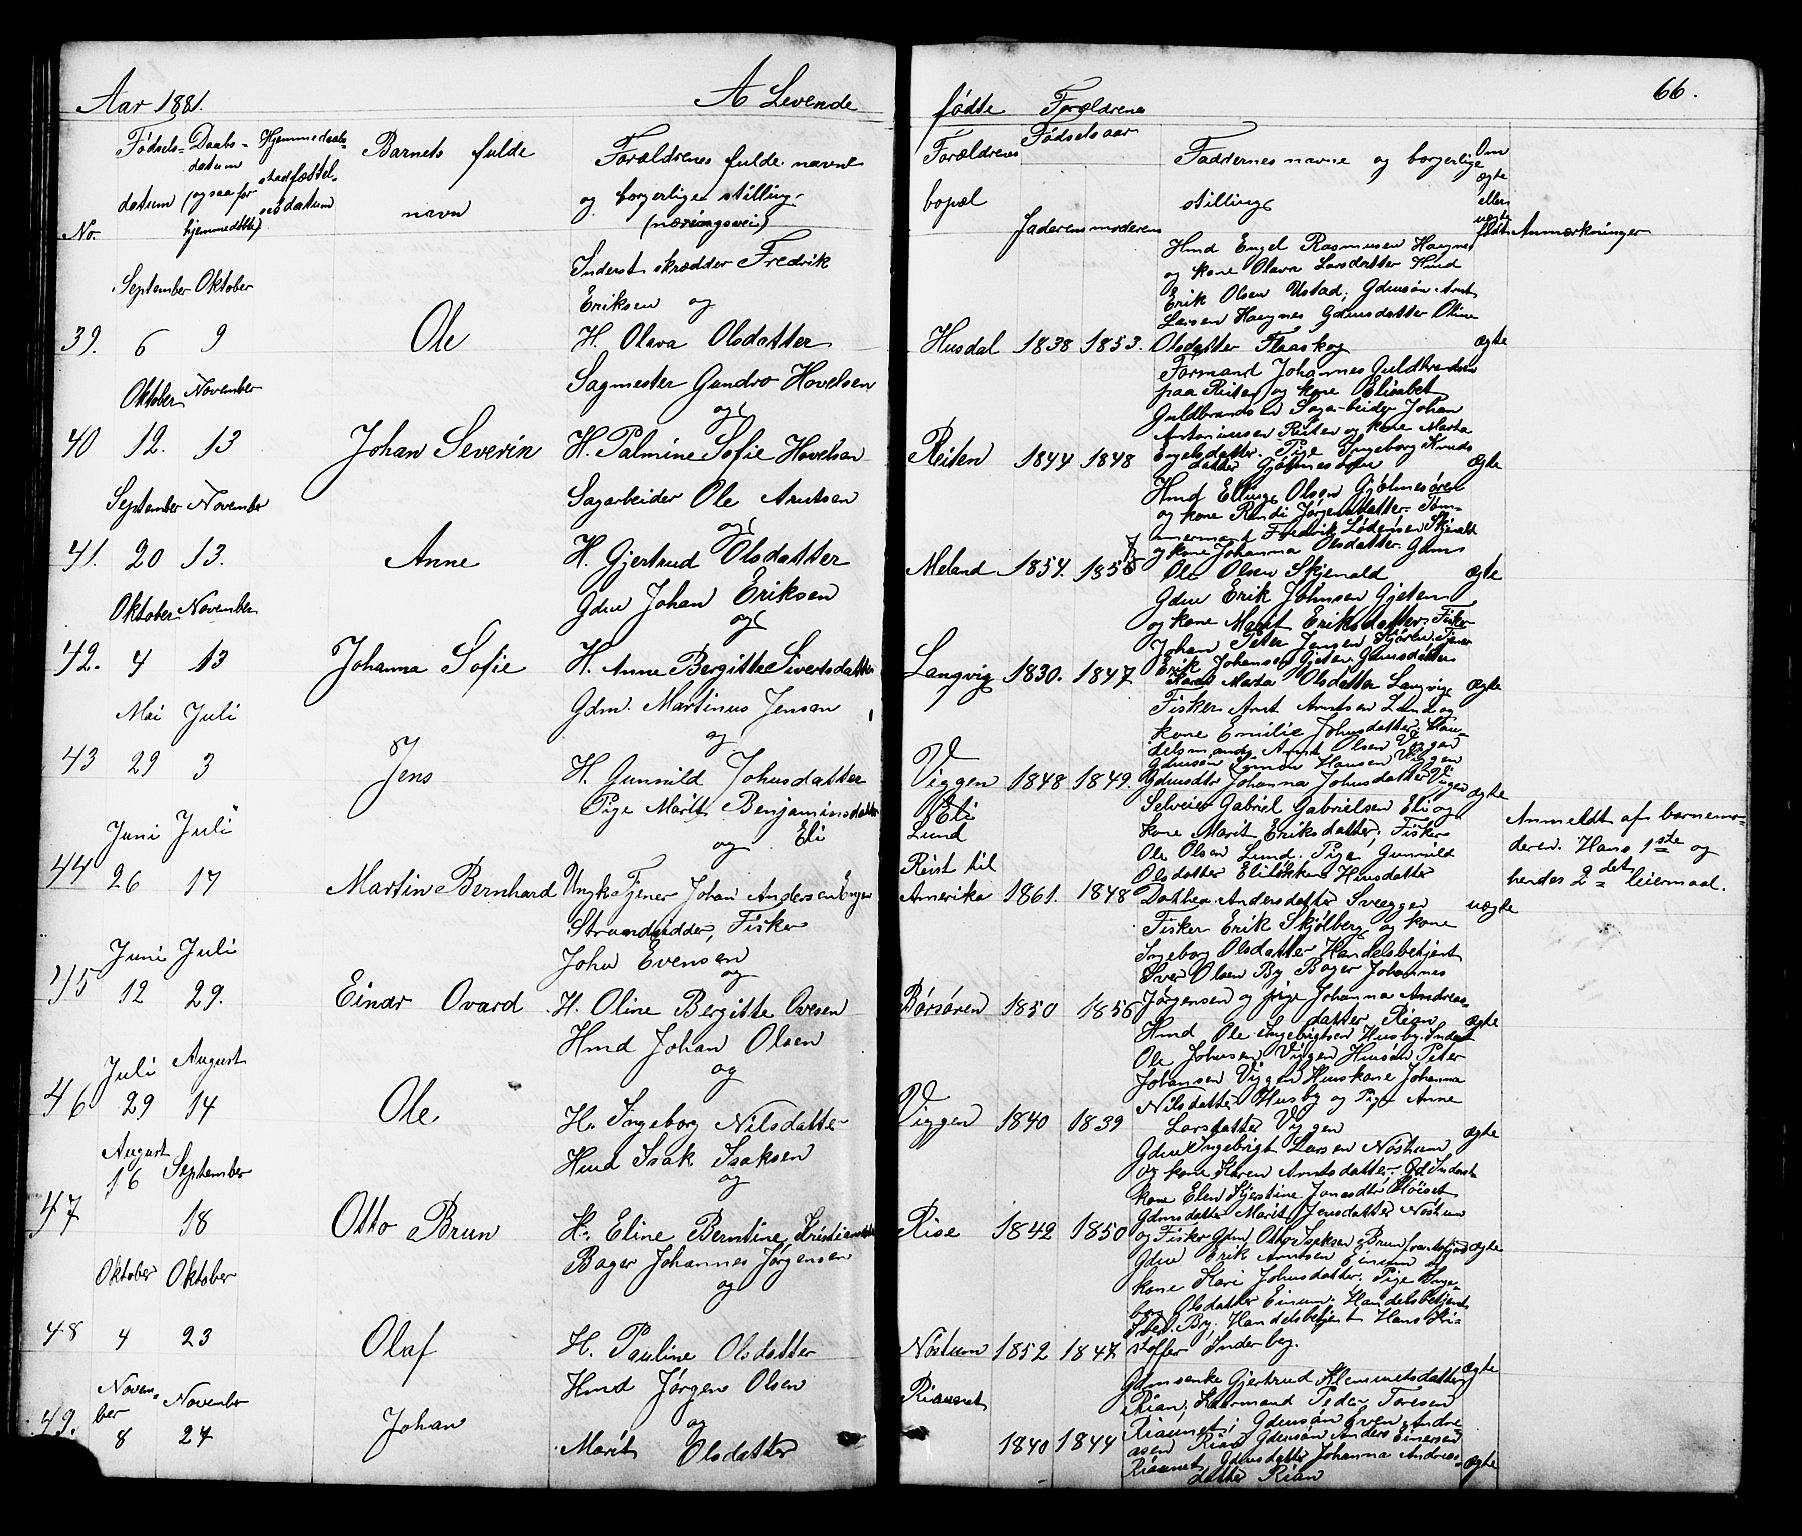 Aar 1881.
A Levende
fødte Forældrenes
66.
Fødsels-
datum
Daabs-
datum
(ogsaa for
hjemmedøbte)
Hjemmedaabs-
stadfæstel-
sesdatum
Barnets fulde
navn
Forældrenes fulde navne
og borgerlige stilling
(næringsvei)
Forældrenes
bopæl
Fødselsaar
faderens moderens
Faddernes navne og borgerlige
stilling
Om
ægte
eller
uægte
født
Anmærkninger
No.
September Oktober
39. 6 9
Ole
Inderst skrædder Fredrik
Eriksen og
H. Olava Olsdatter
Husdal 1838 1853.
Hmd Engel Rasmusen Haugnes
og kone Olava Larsdatter Hmd
Erik Olsen Ustad, Gdmsøn Arnt
Larsen Haugnes Gdmsdatter Oline
Olsdatter Flaaskog
ægte
Oktober November
40 12. 13
Johan Severin
Sagmester Gundro Hovelsen
og
H. Palmine Sofie Hovelsen
Reiten 1844 1848
Formand Johannes Guldbrandsen
paa Reiten og kone Elisabet
Guldbrandsen Sagarbeider Johan
Antoniusen Reiten og kone Marta
Engelsdatter. Pige Ingeborg Knuds
datter Gjølmesøren
Ægte
September November
41. 20 13.
Anne
Sagarbeider Ole Arntsen
og
H. Gjertrud Olsdatter
Meland 1854. 1858
Hmd Ellings Olsen Gjølmesøren
og kone Randi Jørgensdatter. Tøm-
mermand Fredrik Lødensen Skjenald
og kone Johanna Olsdatter. Gdms
Ole Olsen Skjenald
ægte
Oktober November
42. 4 13
Johanna Sofie
Gdm Johan Eriksen
og
H. Anne Bergitte Sivertsdatter
Langvig 1830. 1847
Gdm Erik Johnsen Gjeten
og kone Marit Eriksdatter, Fisker
Johan Peter Jensen Kjøren. Tjener
Erik Johansen Gjeten. Gdmsdatter
Marta Olsdatter Langvig
Ægte
Mai Juli
43 29 3
Jens
Gdm. Martinus Jensen
og
H. Gunnild Johnsdatter
Viggen 1848 1849.
Fisker Arnt Arntsen Lund og
kone Emilie Johnsdatter, Han-
delsmand Arnt Olsen Viggen
Gdmsøn Simon Hansen Viggen
Gdmsdtr Johanna Johnsdatter Viggen
ægte
Juni Juli
44 26 17
Martin Bernhard
Pige Marit Benjaminsdatter
og Eli
Ungk Tjener Johan Andersen
Eli
Lund
Reist til
Amerika 1861. 1848
Selveier Gabriel Gabrielsen Eli og
kone Marit Eriksdatter, Fisker
Ole Olsen Lund. Pige Gunnild
Olsdatter Hmsdatter
Dorthea Andersdatter Svægger
uægte
Anmeldt af barnemo-
deren. Hans 1ste og
hendes 2det leiermaal.
Juni Juli
45 12 29.
Einar Ovard
Strandsidder, Fisker
John Evensen
og
H. Oline Bergitte Ovesen
Børsøren 1850 1856
Fisker Erik Skjølberg og kone
Ingeborg Olsdatter Handelsbetjent
Iver Olsen By Bager Johannes
Jørgensen og pige Johanna Andreas-
datter Rian
ægte
Juli August
46 29 14
Ole
Hmd Johan Olsen
og
H. Ingeborg Nilsdatter
Viggen 1840 1839
Hmd Ole Ingebrigtsen Husby. Inderst
Ole Johnsen Viggen Hmsøn Peter
Johansen Viggen Hmskone Johanna
Nilsdatter Husby og Pige Anne
Larsdatter Viggen
ægte
August
16 September
47 18
Otto Brun
Hmd Isak Isaksen
og
H. Eline Berntine Kristiansdatter
Rise 1842 1850
Gdm Ingebrigt Larsen Nøstum
og kone Karen Arntsdatter. Inderst
kone Elen Kjerstine Jonasdtr
Gdmsdatter Marit Jensdatter Nøstum
og Fisker Gdm Otto Isaksen Brun
ægte
Oktober Oktober
48 4 23
Olaf
Bager Johannes Jørgensen
og
H. Pauline Olsdatter
Nøstum 1852 1847
Gdm Erik Arntsen Einum og
kone Kari Johnsdatter. Pige Inge-
borg Olsdatter Einum. Handelsbetjent
By, Handelsbetjent Hans Kri-
stoffer Inderberg.
ægte
Novem-
ber November
49. 8 27
Johan
Hmd Jørgen Olsen
og
Marit Olsdatter
Riaunet
1840 1844
Gdmsenke Gjertrud Klemmetsdatter
Rian, Kaarmand Peder Toresen
Riaunet, Gdmsøn Even Andre-
asen Rian Gdmsøn Anders Einersen
Riaunet, Gdmsdatter Johanna Andreas-
datter Rian
ægte